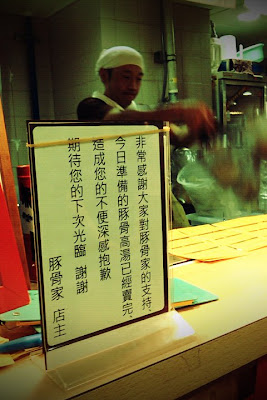 非常感謝大家對豚骨家的支持、
今日準備的豚骨高湯已經賣完、
造成您的不便深感抱歉
期待您的下次光臨 謝謝
豚骨家 店主